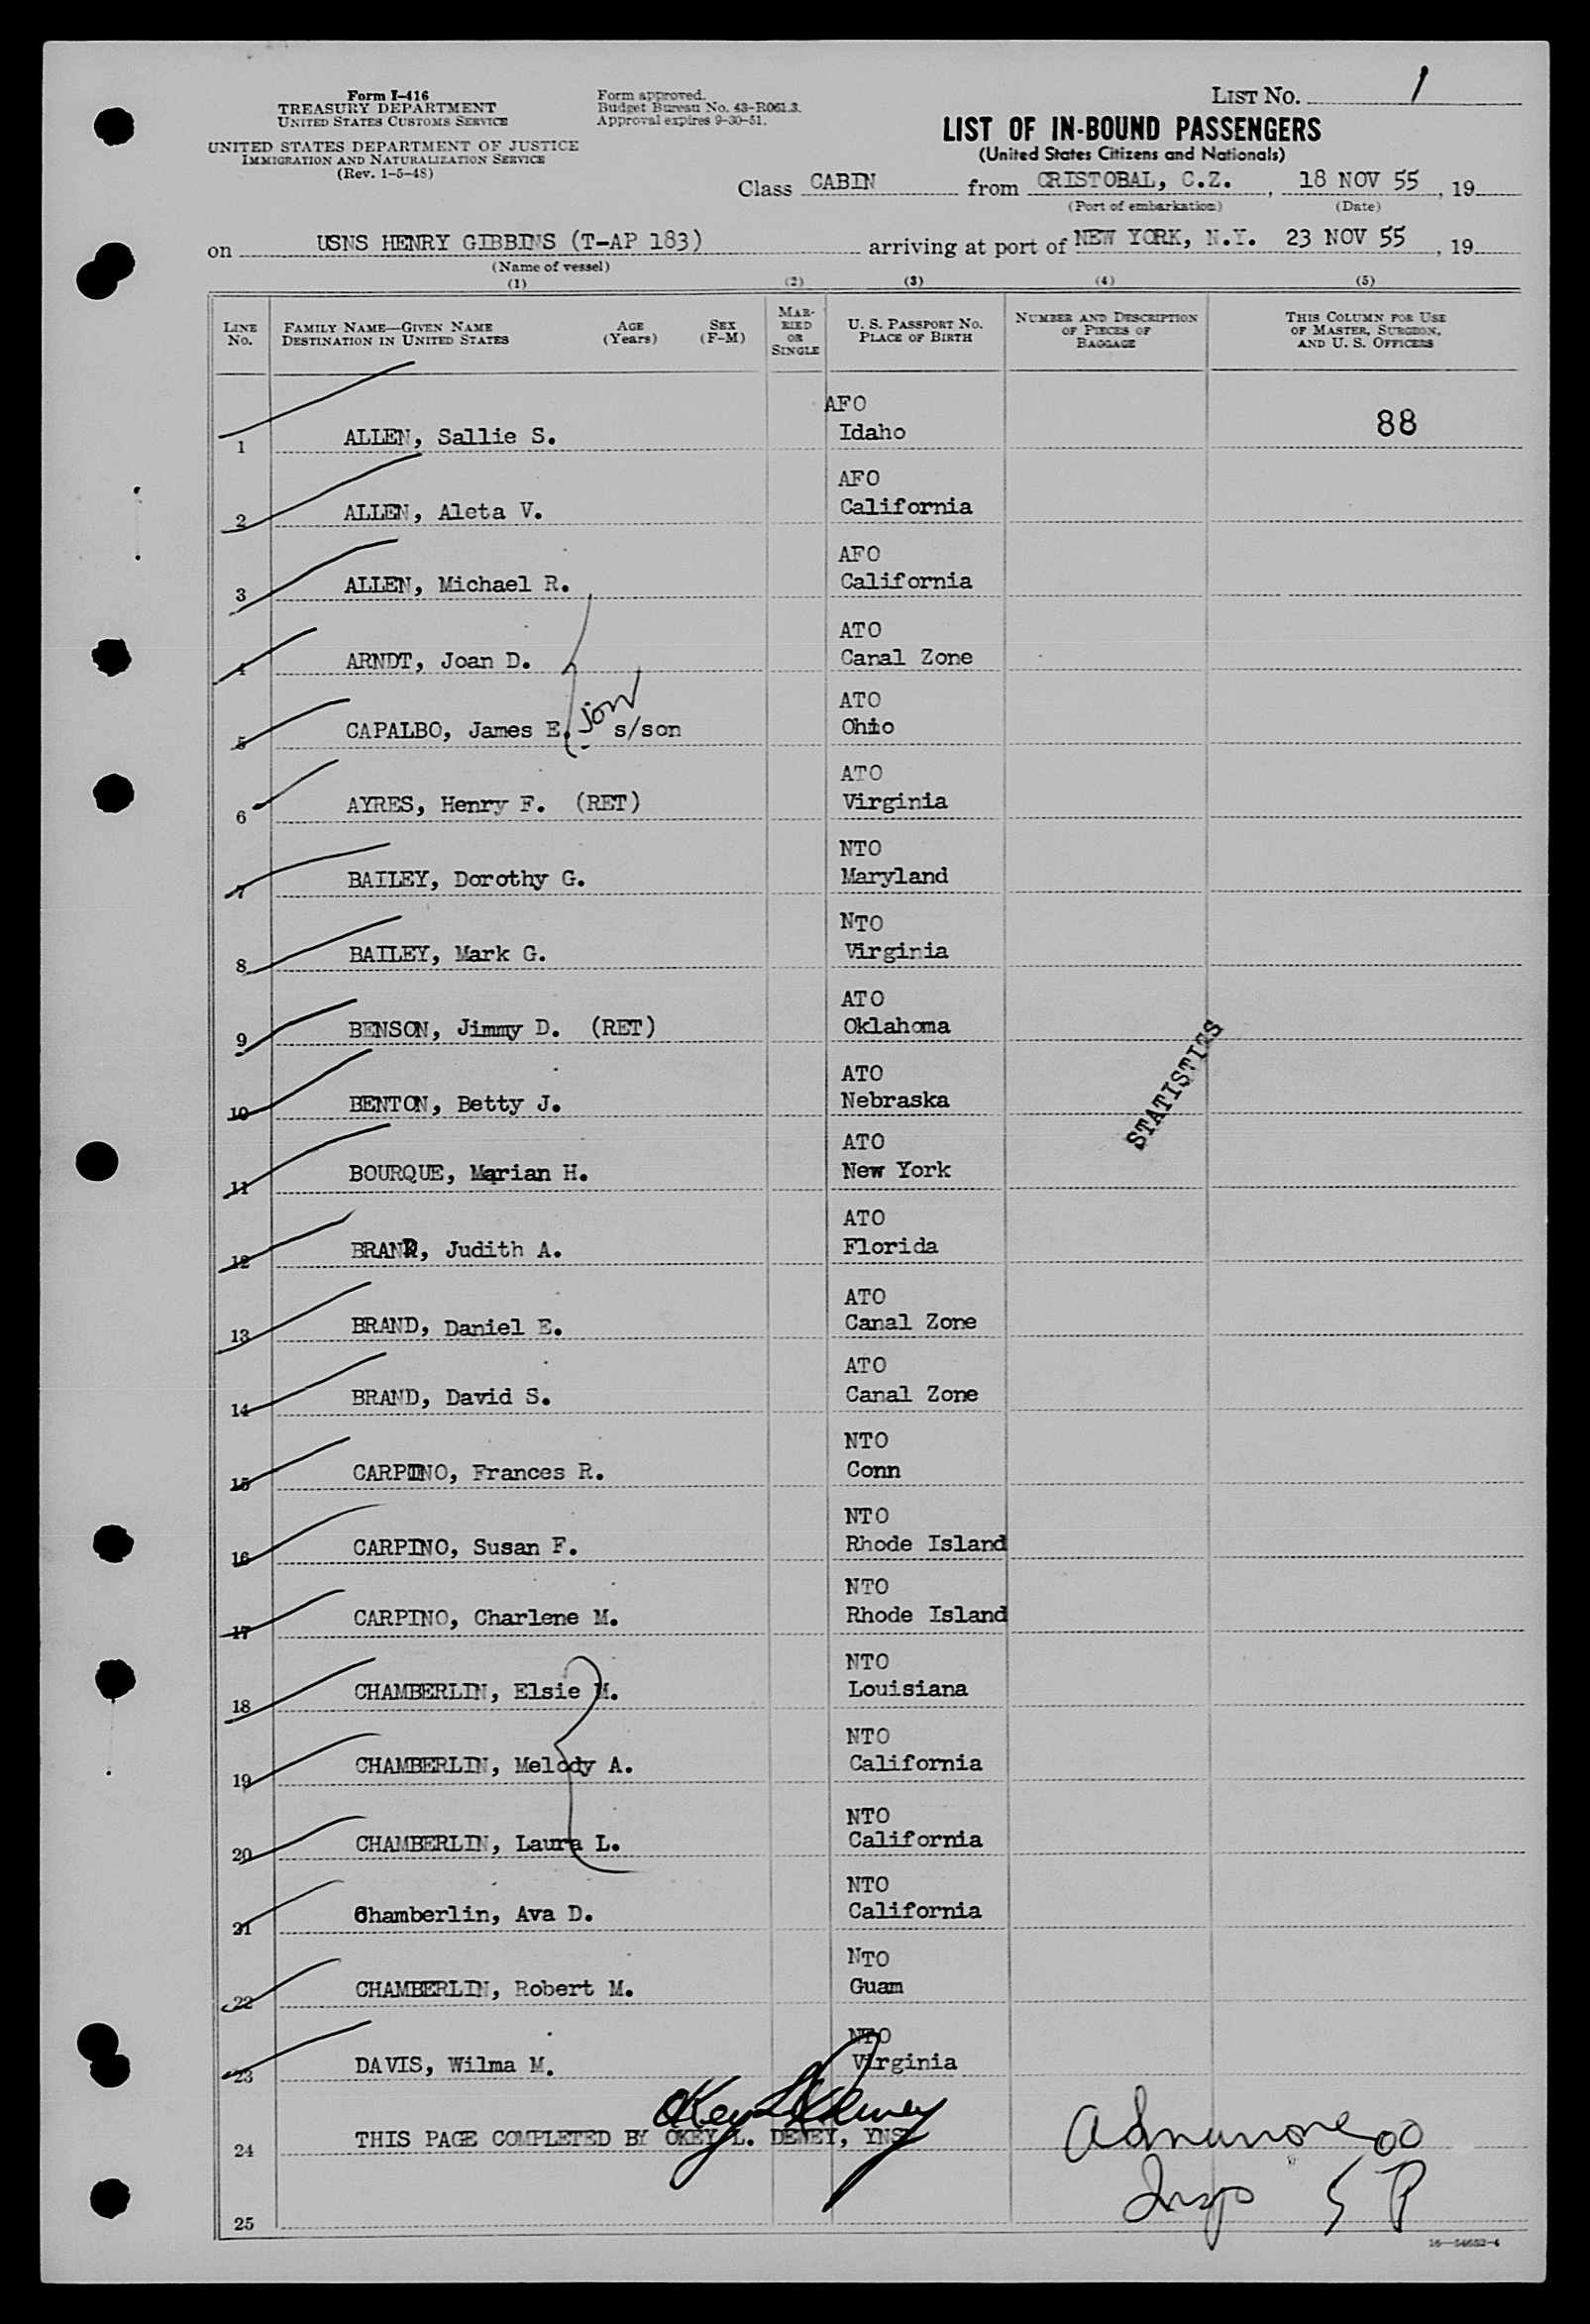 Form I-416
TREASURY DEPARTMENT
UNITED STATES CUSTOMS SERVICE
UNITED STATES DEPARTMENT OF JUSTICE
IMMIGRATION AND NATURALIZATION SERVICE
(Rev. 1-5-48)
Form approved.
Budget Bureau No. 43-R061.3.
Approval expires 9-30-51.
LIST No. 1
LIST OF IN-BOUND PASSENGERS
(United States Citizens and Nationals)
Class CABIN from CRISTOBAL, C.Z. , 18 NOV 55 , 19
(Port of embarkation) (Date)
on USNS HENRY GIBBINS (T-AP 183) arriving at port of NEW YORK, N.Y. 23 NOV 55 , 19
(Name of vessel)
(1) (2) (3) (4) (5)
LINE No. FAMILY NAME—GIVEN NAME DESTINATION IN UNITED STATES AGE (Years) SEX (F-M) MARRIED OR SINGLE U. S. PASSPORT No. PLACE OF BIRTH NUMBER AND DESCRIPTION OF PIECES OF BAGGAGE THIS COLUMN FOR USE OF MASTER, SURGEON, AND U. S. OFFICERS
AFO
1 ALLEN, Sallie S. Idaho 88
AFO
2 ALLEN, Aleta V. California
AFO
3 ALLEN, Michael R. California
ATO
4 ARNDT, Joan D. Canal Zone
ATO
5 CAPALBO, James E. s/son Ohio
ATO
6 AYRES, Henry F. (RET) Virginia
NTO
7 BAILEY, Dorothy G. Maryland
NTO
8 BAILEY, Mark G. Virginia
ATO
9 BENSON, Jimmy D. (RET) Oklahoma
ATO
10 BENTON, Betty J. Nebraska
STATISTICS
ATO
11 BOURQUE, Marian H. New York
ATO
12 BRAND, Judith A. Florida
ATO
13 BRAND, Daniel E. Canal Zone
ATO
14 BRAND, David S. Canal Zone
NTO
15 CARPINO, Frances R. Conn
NTO
16 CARPINO, Susan F. Rhode Island
NTO
17 CARPINO, Charlene M. Rhode Island
NTO
18 CHAMBERLIN, Elsie M. Louisiana
NTO
19 CHAMBERLIN, Melody A. California
NTO
20 CHAMBERLIN, Laura L. California
NTO
21 Chamberlin, Ava D. California
NTO
22 CHAMBERLIN, Robert M. Guam
NTO
23 DAVIS, Wilma M. Virginia
Okey L Dewey
24 THIS PAGE COMPLETED BY OKEY L. DEWEY, YNS
Insp S P
25
16—54652-4